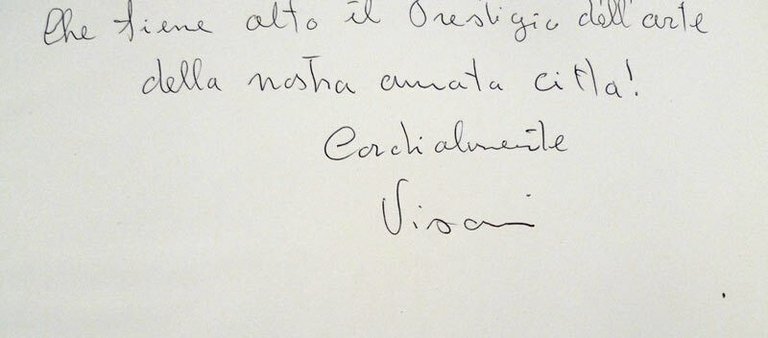 Che tiene alto il Prestigio dell'arte
della nostra amata città!
Cordialmente